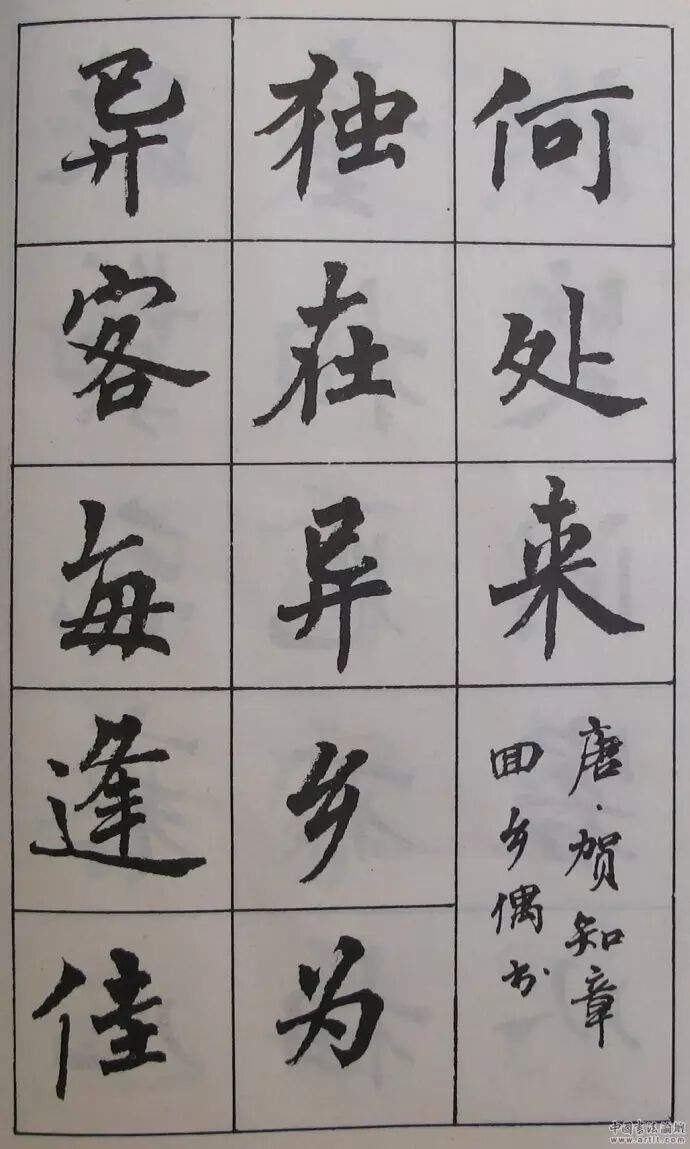 何处来
唐·贺知章
回乡偶书
独在异乡为
异客每逢佳
中国书法论坛
www.artit.com